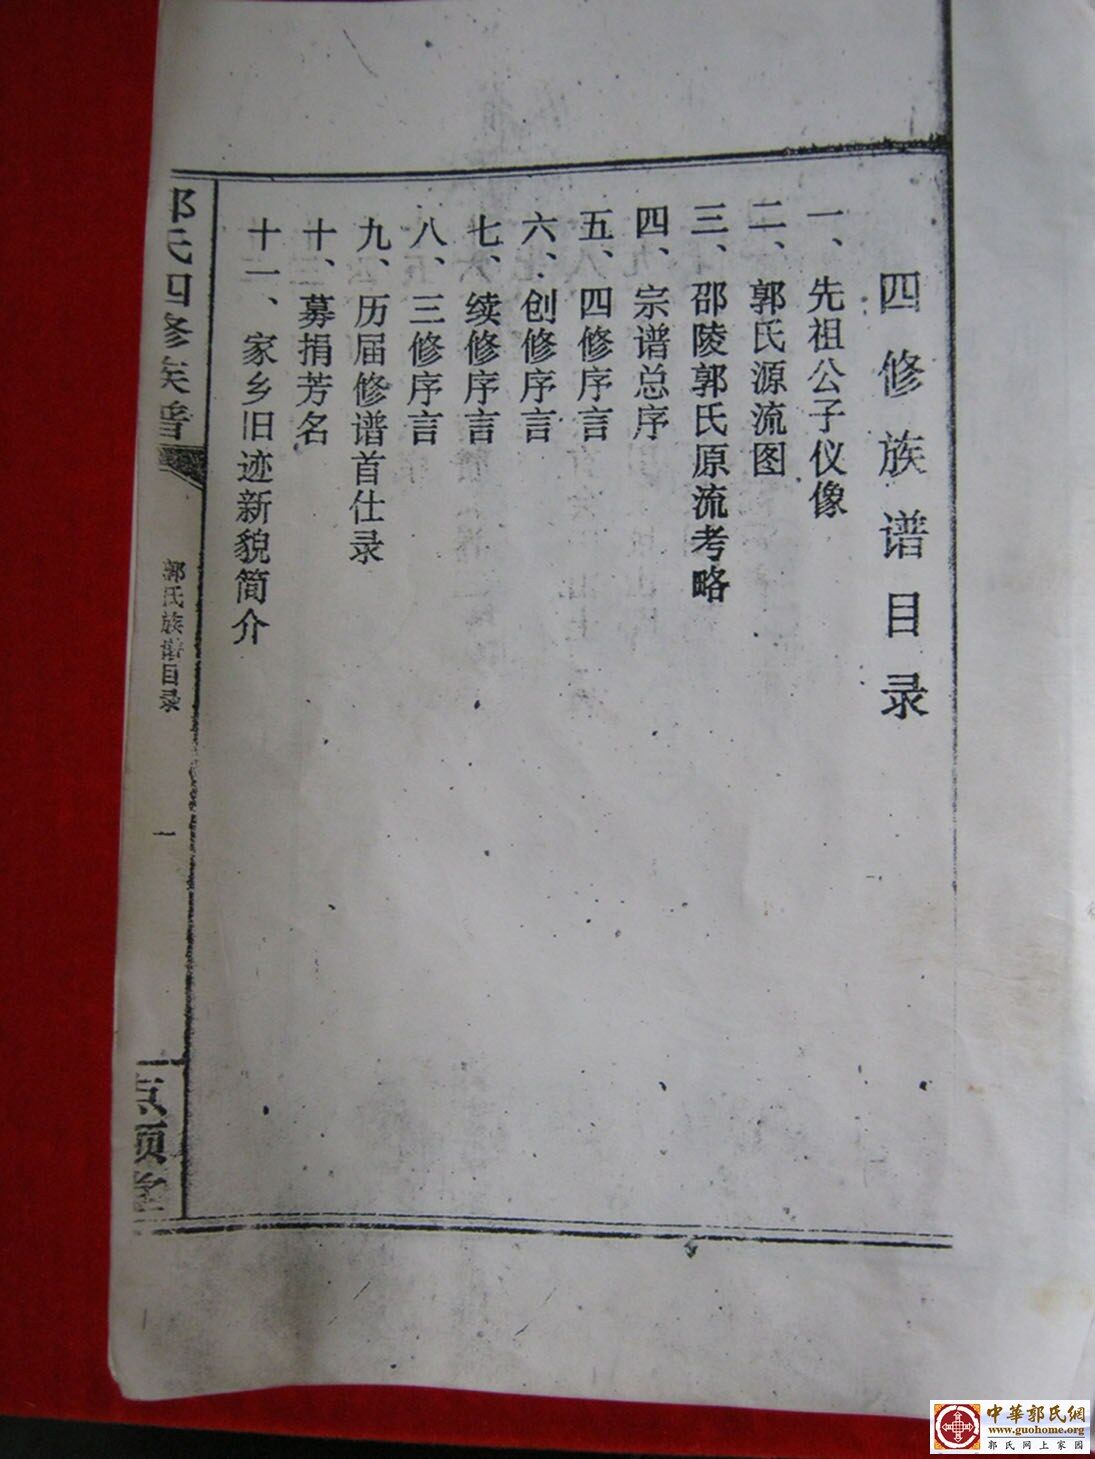 四修族谱目录
一、先祖公子仪像
二、郭氏源流图
三、邵陵郭氏原流考略
四、宗谱总序
五、四修序言
六、创修序言
七、续修序言
八、三修序言
九、历届修谱首仕录
十、募捐芳名
十一、家乡旧迹新貌简介
郭氏四修族谱
郭氏族谱目录
一
中華郭氏網
www.guohome.org
郭氏网上家园